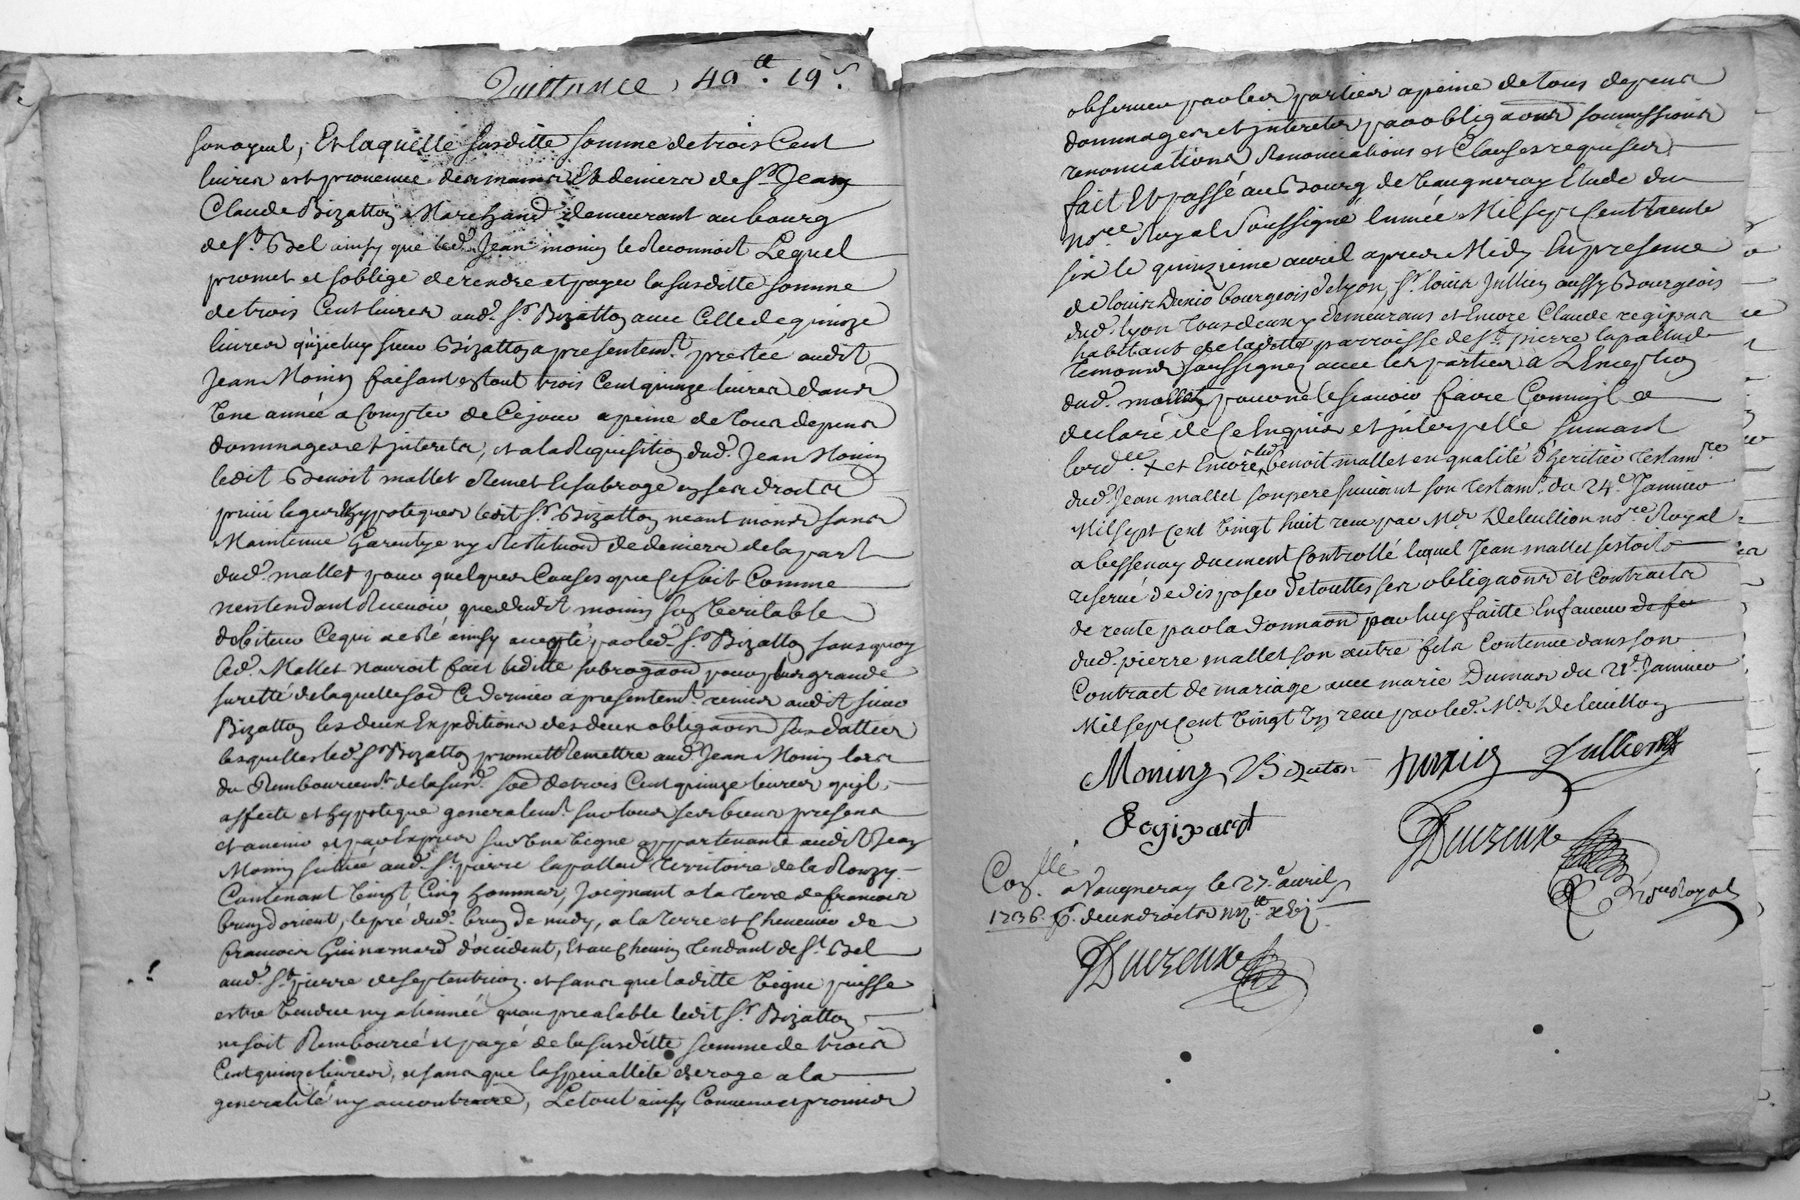 Quittance, 49tt 19s
son ayeul, Et laquelle susditte somme de trois Cent
livres est provenue des mains Et deniers de Sr Jean
Claude Bizatton Marchand demeurant au bourg
de St Bel ainsy que led. Jean monin le Reconnoit Lequel
promet et soblige de rendre et payer la susditte somme
de trois Cent livres aud. Sr Bizatton avec Celle de quinze
livres qu'jceluy sieur Bizatton a presentemt. prestée audit
Jean Monin faisant en tout trois Cent quinze livres dans
Une année a Compter de Ce jour a peine de tous depens
dommages et jnterets, et a la Requisition dud. Jean Monin
ledit Benoit mallet Remet et subroge en ses droits
privileges et hypoteques ledit Sr Bizatton neantmoins sans
Maintenue Garentye ny Restitution de deniers de la part
dud. mallet pour quelques Causes que Ce soit Comme
nentendant Recevoir que dudit monin son Veritable
debiteur Ce qui a esté ainsy accepté par led. Sr Bizatton sans quoy
led. Mallet nauroit fait laditte subrogaon pour plus grande
sureté de laquelle led. Ce dernier a presentemt. remis audit sieur
Bizatton les deux Expeditions des deux obligaons susdattées
lesquelles led. Sr Bizatton promet Remettre aud. Jean Monin lors
du Remboursemt. de la susd. soe de trois Cent quinze livres quil
affecte et hypoteque generalemt. sur tous ses biens presens
et avenir et par Exprès sur Une Vigne appartenante audit Jean
Monin scituée aud. St pierre lapallud territoire de la Ronzy
Contenant Vingt Cinq hommes, Joignant a la terre de francois
bruy d'orient, le pré dud. bruy de midy, a la terre et Cheneuier de
francois Guinamard d'occident, Et au Chemin Tendant de St Bel
aud. St pierre de septentrion. et sans que laditte Vigne puisse
estre Vendue ny alienneé quau prealable ledit Sr Bizatton
ne soit Remboursé et payé de la susditte somme de trois
Cent quinze livres, et sans que la specialleté deroge a la
generalité ny au contraire, Le tout ainsy Convenu et promis
observer par les parties a peine de tous depens
dommages et jnterets par obligaons soumissions
renonciations Renonciations et Clauses requises
fait Et passé au Bourg de Vaugneray Etude du
nore Royal soussigné lannée Mil sept Cent trente
six le quinzieme avril apres Midy En presence
de louis bourgeois de lyon, Sr louis Jullien aussy Bourgeois
dud. lyon tous deux y demeurans et Encore Claude regipas
habitant de laditte parroisse de St pierre lapallud
temoins soussignes avec les parties a LException
dud. mallet pour ne le scavoir faire Comme jl a
declaré de Ce Enquis et jnterpellé suivant
lordce + et Encore led. benoit mallet en qualité d'heritier testamre
dud. Jean mallet son pere suivant son testamt. du 24e Janvier
Mil sept Cent Vingt huit receu par Me Deleullion nore Royal
a bessenay duement Controllé lequel Jean mallet sestoit
reservé de disposer de touttes ses obligaons et Contracts
de rente par la donnaon par luy faitte En faveur de fe
dud. pierre mallet son autre fils Contenue dans son
Contract de mariage avec marie Dumas du 21e Janvier
Mil sept Cent Vingt Un receu par led. Me Deleullion
Monin Bizaton Jullien
Regipard
Ducreux
nre Royal
Collé a Vaugneray le 27e avril
1736.
Ducreux